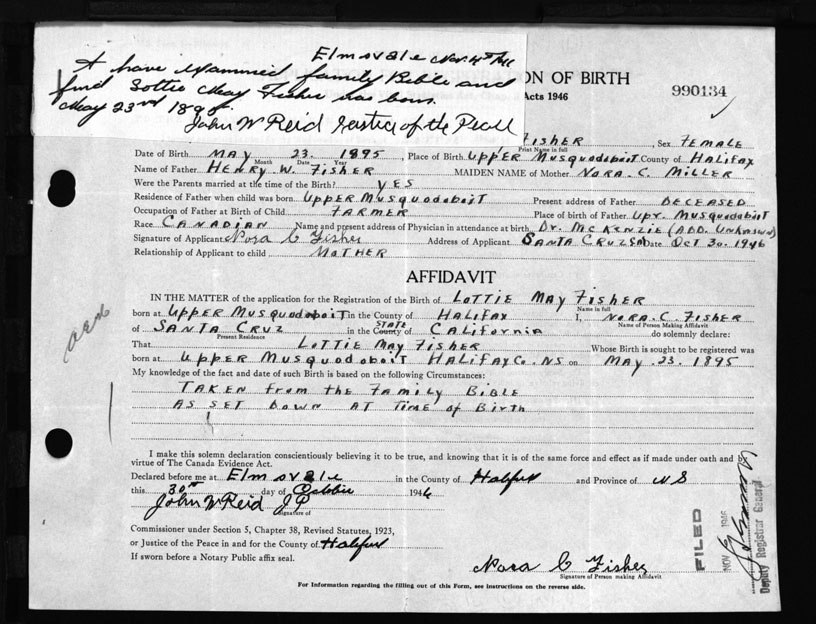 Elmsvale Nov. 4th
I have examined family Bible and
find Lottie May Fisher was born
May 23rd 1895.
John W Reid Justice of the Peace
ON OF BIRTH
Acts 1946
990134
FISHER, Sex FEMALE
Print Name in full
Date of Birth MAY 23. 1895, Place of Birth UppER MusquodoboiT County of HALIFAX
Month Date Year
Name of Father HENRY. W. FISHER MAIDEN NAME of Mother NORA. C. MILLER
Were the Parents married at the time of the Birth? YES
Residence of Father when child was born UppER MusquodoboiT Present address of Father DECEASED
Occupation of Father at Birth of Child FARMER Place of birth of Father Upr. MusquodoboiT
Race CANADIAN Name and present address of Physician in attendance at birth Dr. McKENZIE (ADD. UnKnown)
Signature of Applicant Nora C Fisher Address of Applicant SANTA CRUZ Date OCT 30. 1946
Relationship of Applicant to child MOTHER
AFFIDAVIT
IN THE MATTER of the application for the Registration of the Birth of LOTTIE MAY FISHER
Name in full
born at UppER MusquodoboiT in the County of HALIFAX I, NORA. C. FISHER
Name of Person Making Affidavit
of SANTA CRUZ in the County STATE of CALIFORNIA do solemnly declare:
Present Residence
That LOTTIE MAY FISHER Whose Birth is sought to be registered was
born at UppER MusquodoboiT HALIFAX Co. NS on MAY. 23. 1895
My knowledge of the fact and date of such Birth is based on the following Circumstances:
TAKEN from the FAMILY BIBLE
AS SET DOWN AT TIME of BIRTH
I make this solemn declaration conscientiously believing it to be true, and knowing that it is of the same force and effect as if made under oath and by
virtue of The Canada Evidence Act.
Declared before me at Elmsvale in the County of Halifax and Province of NS
this 30th day of October 1946
John W Reid JP
Signature of
Commissioner under Section 5, Chapter 38, Revised Statutes, 1923,
or Justice of the Peace in and for the County of Halifax
If sworn before a Notary Public affix seal.
Nora C Fisher
Signature of Person making Affidavit
For Information regarding the filling out of this Form, see instructions on the reverse side.
FILED
NOV 1946
Deputy Registrar General